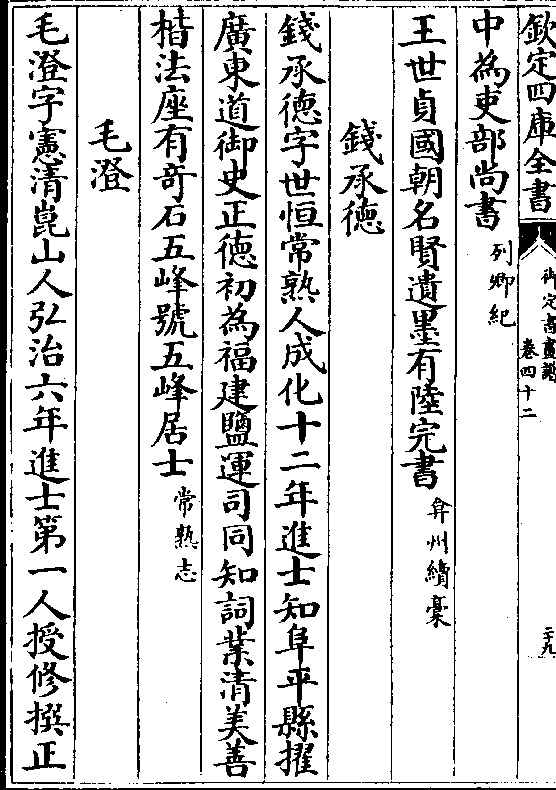 欽定四庫全書
御定書畫譜
卷四十二
二十九
中為吏部尚書列卿紀
王世貞國朝名賢遺墨有陸完書弇州續稾
錢承德
錢承德字世恒常熟人成化十二年進士知阜平縣擢
廣東道御史正德初為福建鹽運司同知詞業清美善
楷法座有奇石五峰號五峰居士常熟志
毛澄
毛澄字憲清崑山人弘治六年進士第一人授修撰正